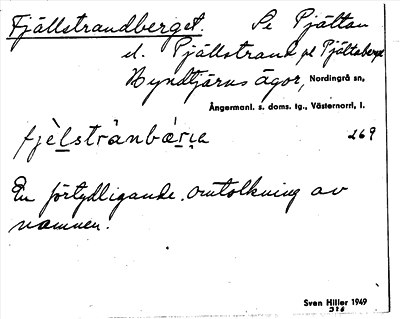 Fjällstrandberget. Se Pjältan
el. Pjällstrand på Pjältaberget
Byndtjärns ägor, Nordingrå sn,
Ångermanl. s. doms. tg., Västernorrl. l.
fjèlstrànbæ̀rjɐ 269
En förtydligande omtolkning av
namnen.
Sven Hiller 1949
326